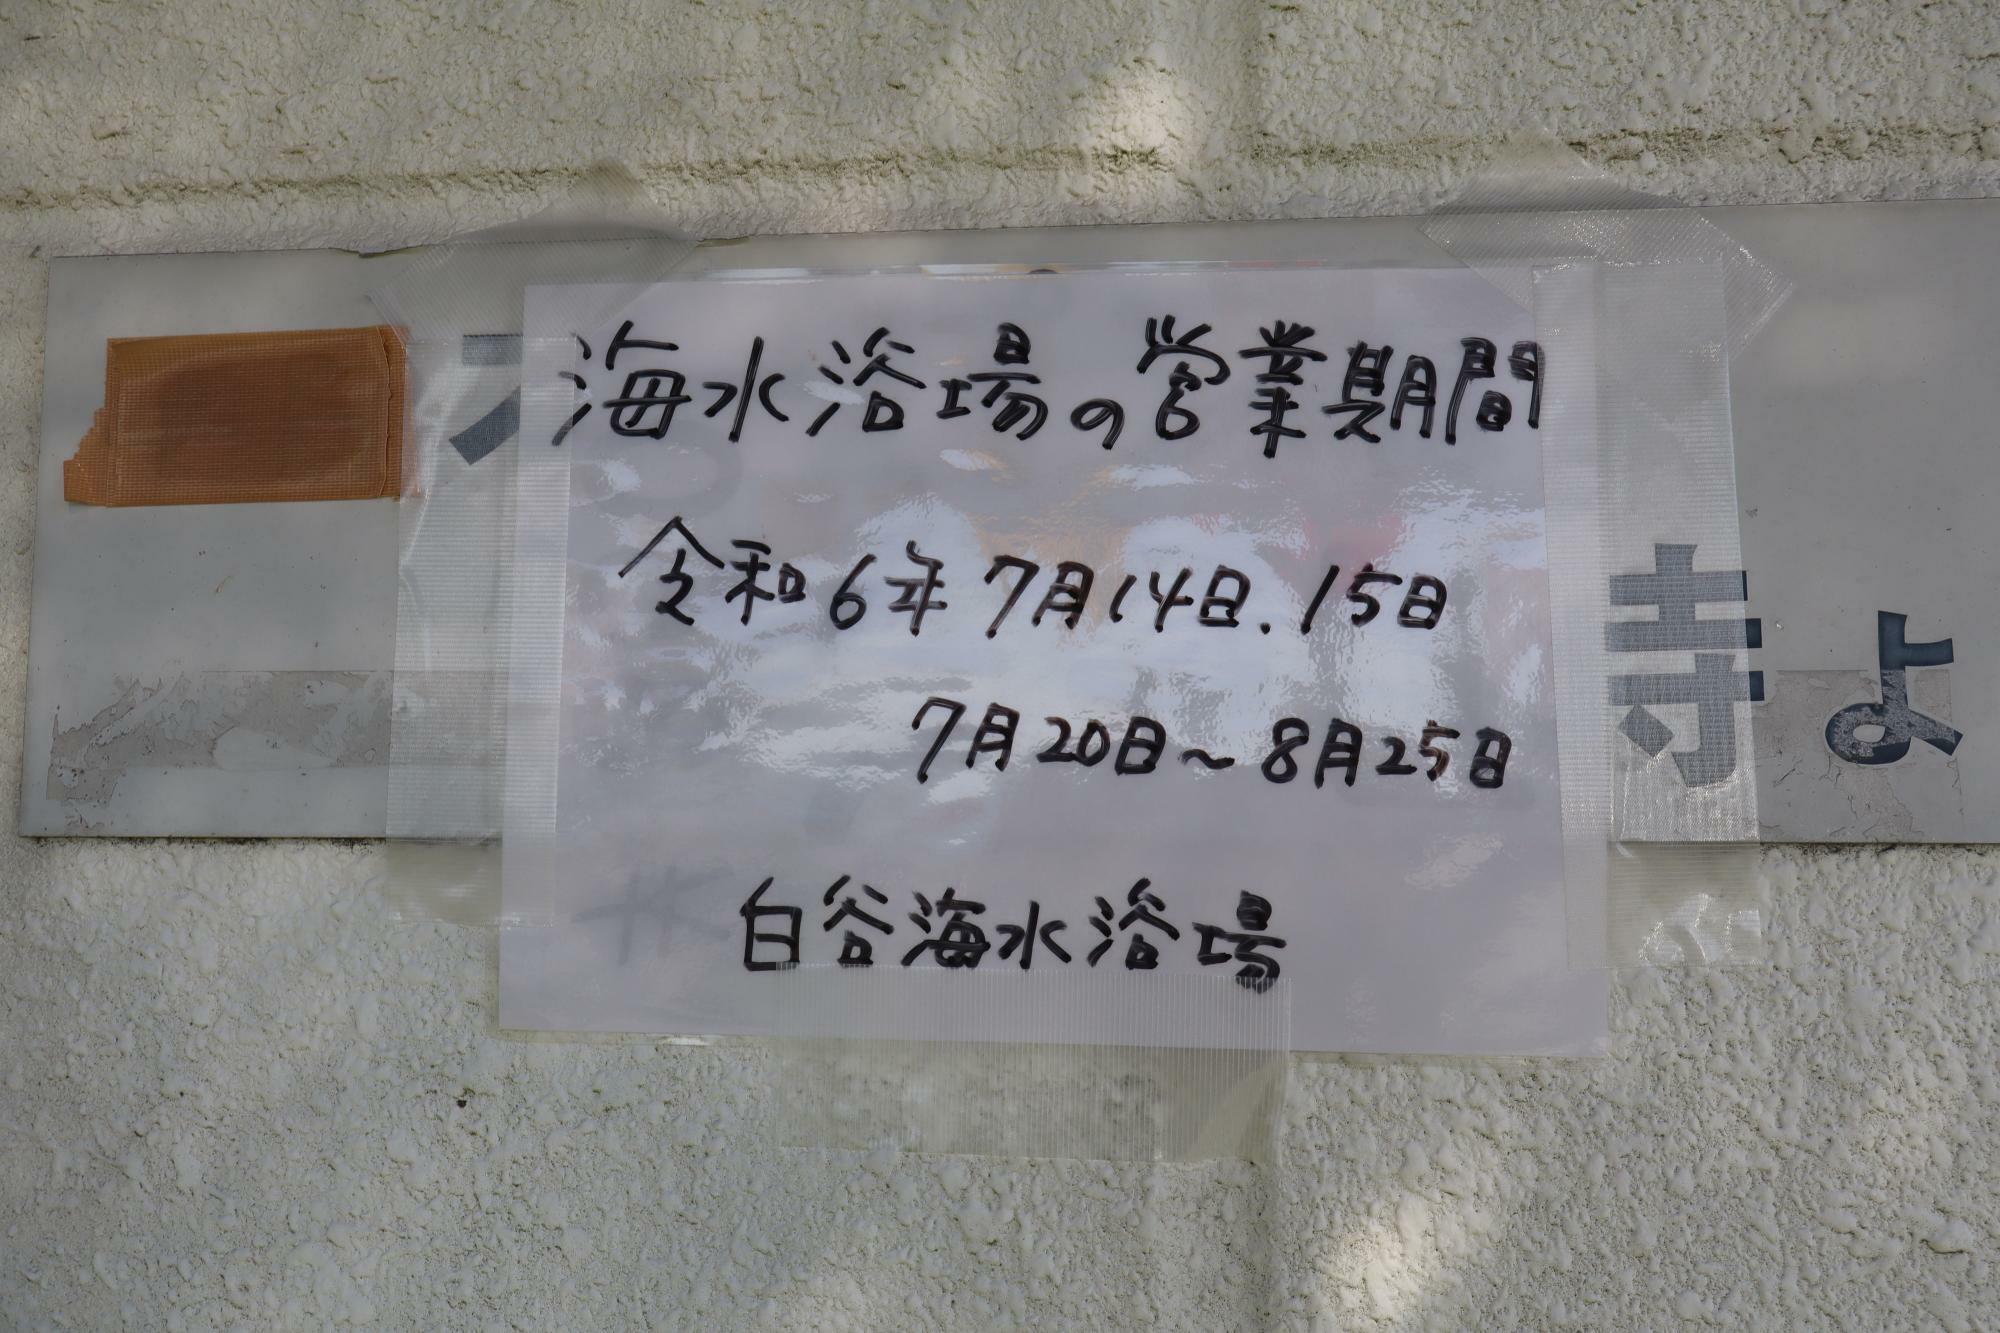 海水浴場の営業期間
令和6年7月14日.15日
7月20日～8月25日
白谷海水浴場
時
よ